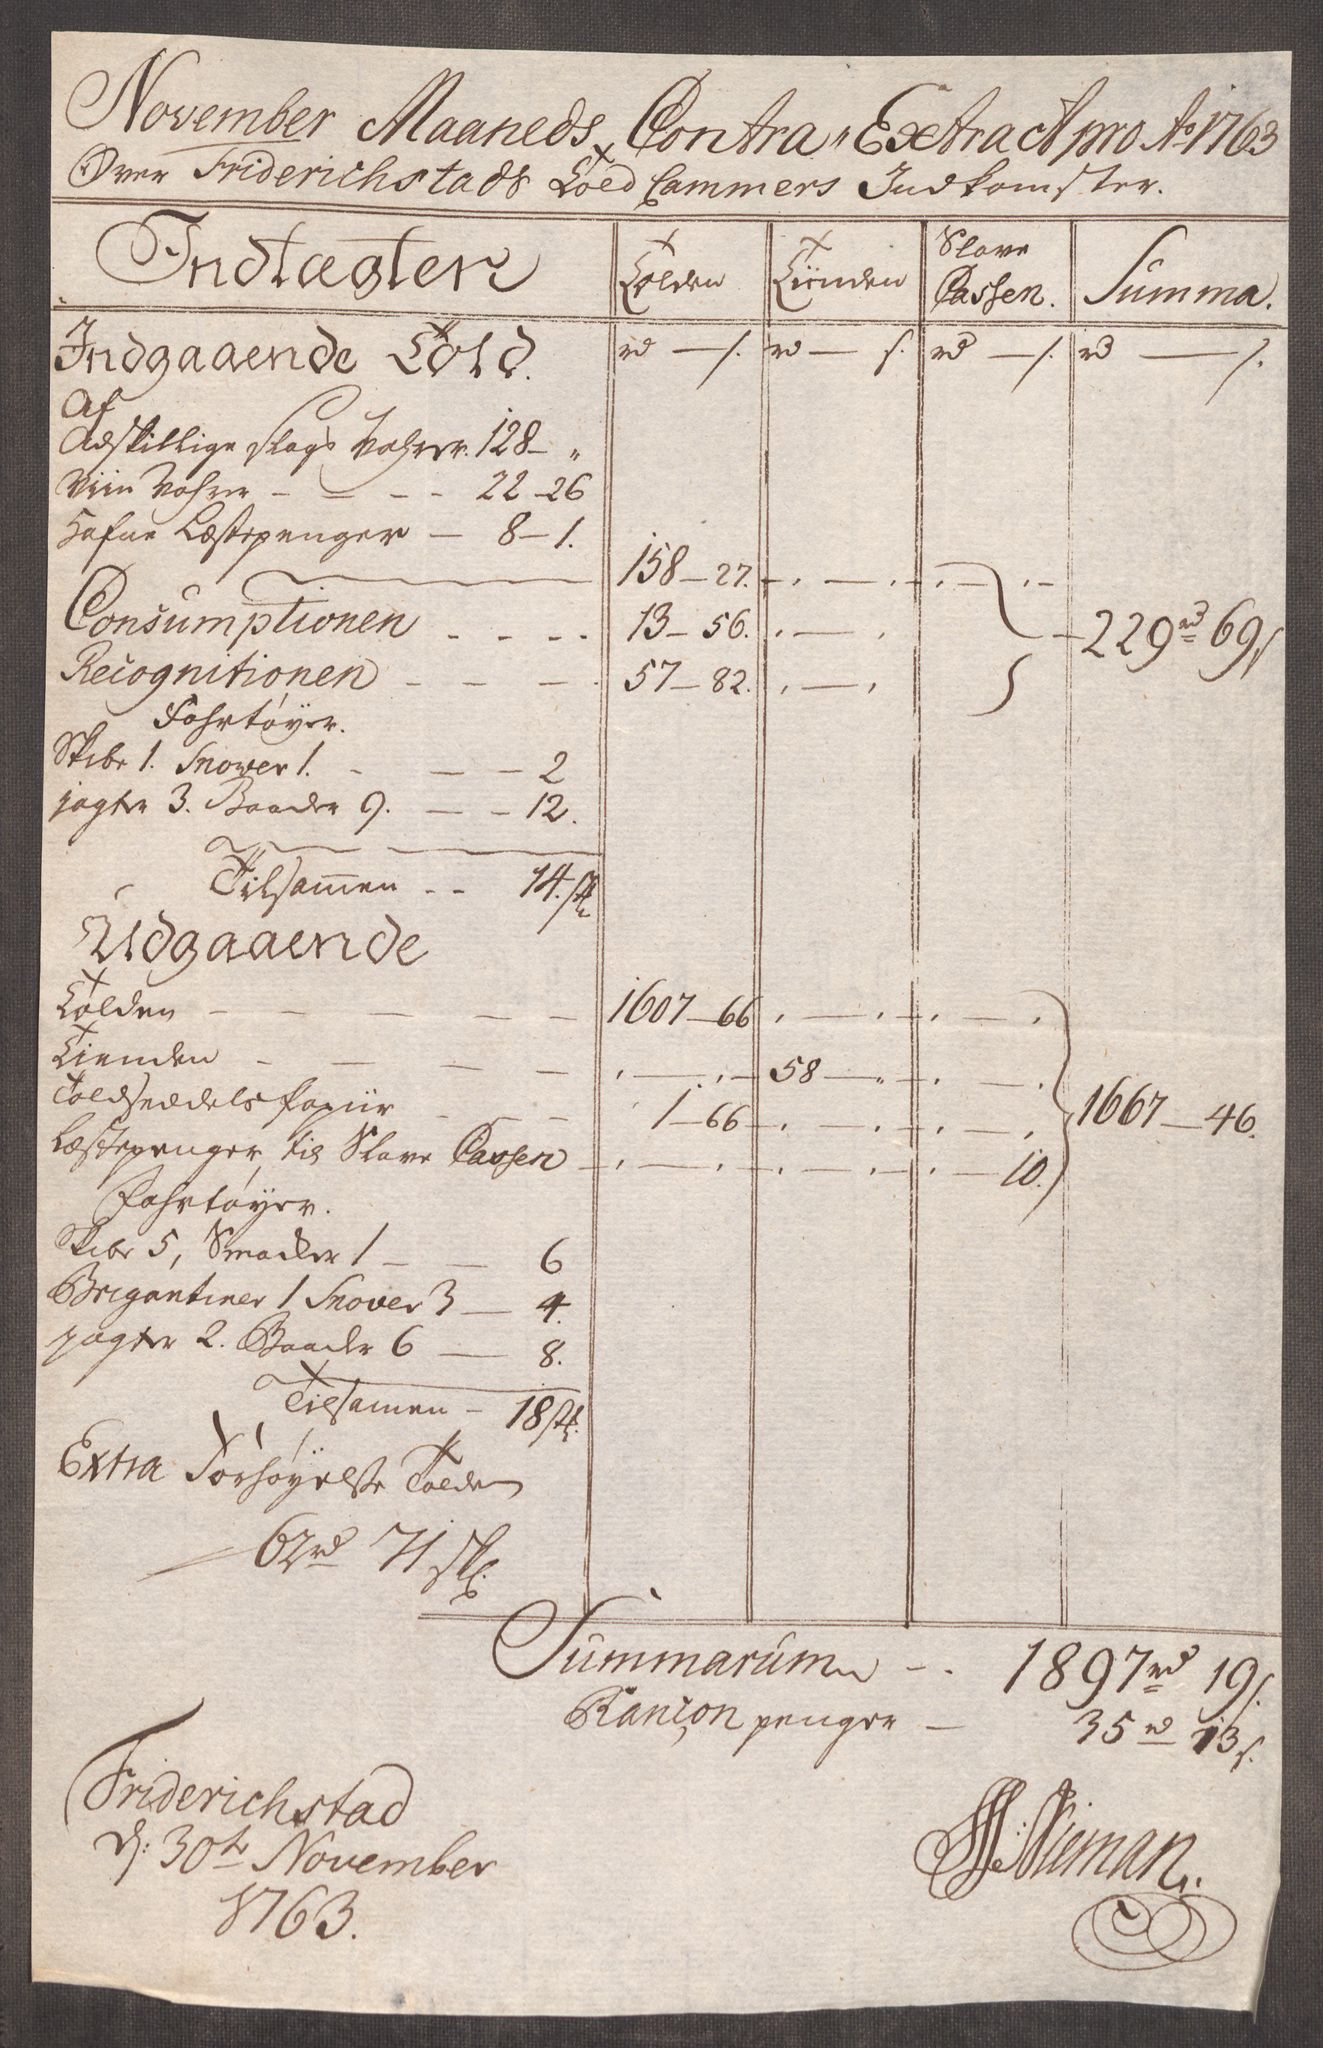 November Maaneds Contra Extract pro Ao 1763
Over Friderichstads Told Cammers Indkomster.
Indtægter Tolden Tienden Slave Cassen. Summa.
Indgaaende Told. rd — s. rd — s. rd — s. rd — s.
Af
Adskillige slags Vahrer. 128 — „
Viin Vahrer — — — — 22 — 26
Hafne Læstepenger — 8 — 1.
158 — 27.
Consumptionen - - - - 13 — 56. 229 rd 69 s
Recognitionen - - - - 57 — 82.
Fahrtøyer.
Skibe 1. Snower 1. - — — 2
jagter 3. Baader 9. — — 12.
Tilsamen - - 14. stk
Udgaaende
Tolden — — — — — 1607 — 66
Tienden — — — — 58 — „
Toldseddels Papiir — — — 1 — 66 1667 — 46.
Læstepenger til Slave Cassen — 10.
Fahrtøyer.
Skibe 5, Smacker 1 — — 6
Brigantiner 1 Snover 3 — 4.
jagter 2. Baader 6 — 8.
Tilsamen — 18 stk.
Extra Forhøyelse Tolden
62 rd 71 sk.
Summarum - - 1897 rd 19 s.
Rançon penger — 35 rd 13 s.
Friderichstad
d: 30te November
1763.
Nieman